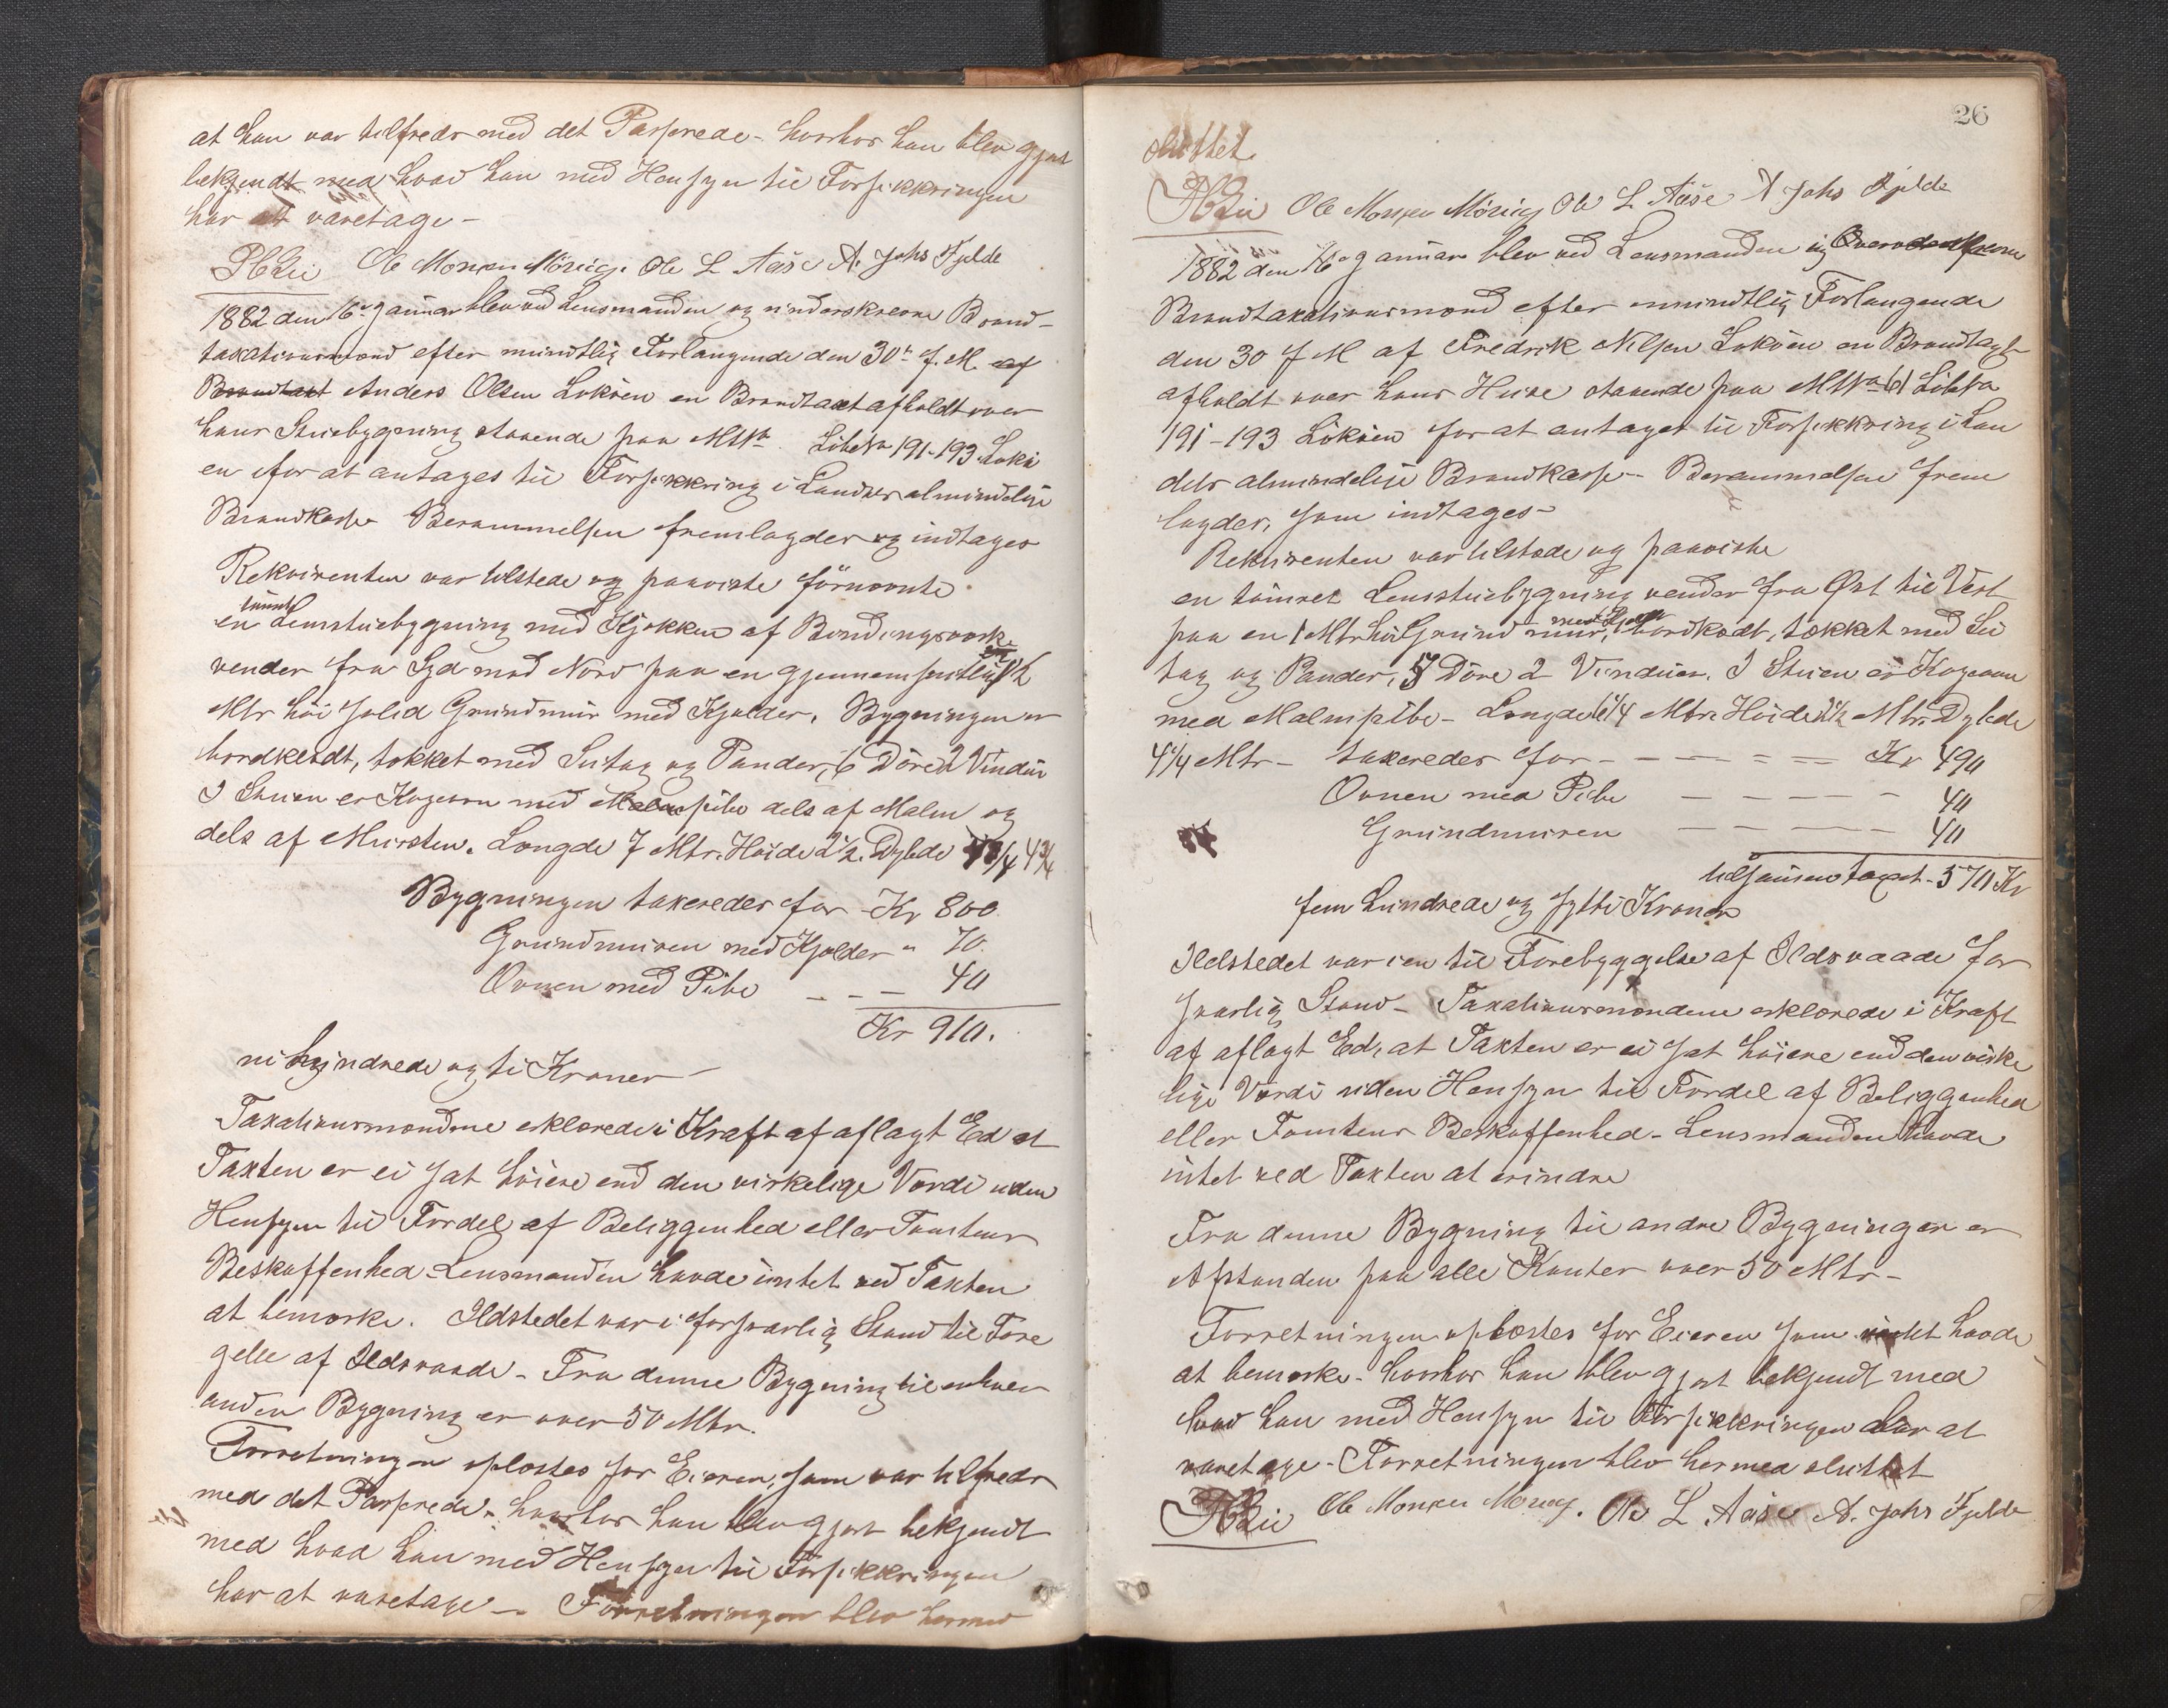 at han var tilfreds med det Passerede - hvorhos han blev gjort
bekjendt med hvad han med Hensyn til Forsikkringen
har at varetage -
Ole Monsen Ole L Aase A. Johs Fjelde
1882 den 16de Januar blev ved Lensmanden og underskrevne Brand-
taxationsmænd efter mundtlig Forlangende den 30te f. M. af
Brandtaxt Anders Olsen Lokøen en Brandtaxt afholdt over
hans Stuebygning staaende paa MtNo Løbe No 191-193 Lokø
en for at antages til Forsikkring i Landets almindelige
Brandkasse Berammelsen fremlagdes og indtages
Rekvirenten var tilstede og paaviste førnævnte
tømt
en Lemstuebygning med Kjøkken af Bindingsværk
vender fra Syd mod Nord paa en gjennemsnitlig 1 1/2
Mtr høi solid Grundmur med Kjelder. Bygningen er
bordklædt, tækket med Sutag og Pander, 6 Døre 2 Vindu
I Stuen er Kogeovn med Malmpibe dels af Malm og
dels af Mursten. Længde 7 Mtr. Høide 2 1/2. Dybde 4 3/4
Bygningen taxeredes for - Kr 800
Grundmuren med Kjelder " 70.
Ovnen med Pibe - - - 40
Kr 910.
ni hundrede og ti Kroner
Taxationsmændene erklærede i Kraft af aflagt Ed at
Taxten er ei sat høiere end den virkelige Værdi uden
Hensyn til Fordel af Beliggenhed eller Tomtens
Beskaffenhed - Lensmanden havde intet ved Taxten
at bemærke. Ildstedet var i forsvarlig Stand til Fore
gelse af Ildsvaade - Fra denne Bygning til enhver
anden Bygning er over 50 Mtr.
Forretningen oplæstes for Eieren, som var tilfreds
med det Passerede - hvorhos han blev gjort bekjendt
med hvad han med Hensyn til Forsikkringen
har at varetage - Forretningen blev hermed
26
sluttet.
Ole Monsen Ole L Aase A Johs Fjelde
1882 den 16de Januar blev ved Lensmanden og
Brandtaxationsmænd efter mundtlig Forlangende
den 30 f M af Fredrik Nilsen Lokøen en Brandtaxt
afholdt over hans Huse staaende paa MtNo 61 LøbeNo
191-193 Lokøen for at antages til Forsikkring i Lan
dets almindelige Brandkasse - Berammelsen frem
lagdes, som indtages -
Rekvirenten var tilstede og paaviste
en tømret Lemstuebygning vender fra Øst til Vest
paa en 1 Mtr høi Grundmur, bordklædt, tækket med Su
tag og Pander, 5 Døre 2 Vinduer. I Stuen er Kogeovn
med Malmpibe - Længde 6 1/4 Mtr. Høide 2 1/2 Mtr. Dybde
4 1/4 Mtr - taxeredes for - - - - = = Kr 490
Ovnen med Pibe - - - - - 40
Grundmuren - - - - 40
tilsammen taxet - 570 Kr
fem hundrede og sytti Kroner
Ildstedet var i en til Forebyggelse af Ildsvaade for
svarlig Stand - Taxationsmændene erklærede i Kraft
af aflagt Ed, at Taxten er ei sat høiere end den virke
lige Værdi uden Hensyn til Fordel af Beliggenhed
eller Tomtens Beskaffenhed - Lensmanden havde
intet ved Taxten at erindre
Fra denne Bygning til andre Bygninger er
Afstanden paa alle Kanter over 50 Mtr -
Forretningen oplæstes for Eieren som intet havde
at bemærke - hvorhos han blev gjort bekjendt med
hvad han med Hensyn til Forsikkringen har at
varetage - Forretningen blev hermed sluttet
Ole Monsen Ole L Aase A. Johs Fjelde